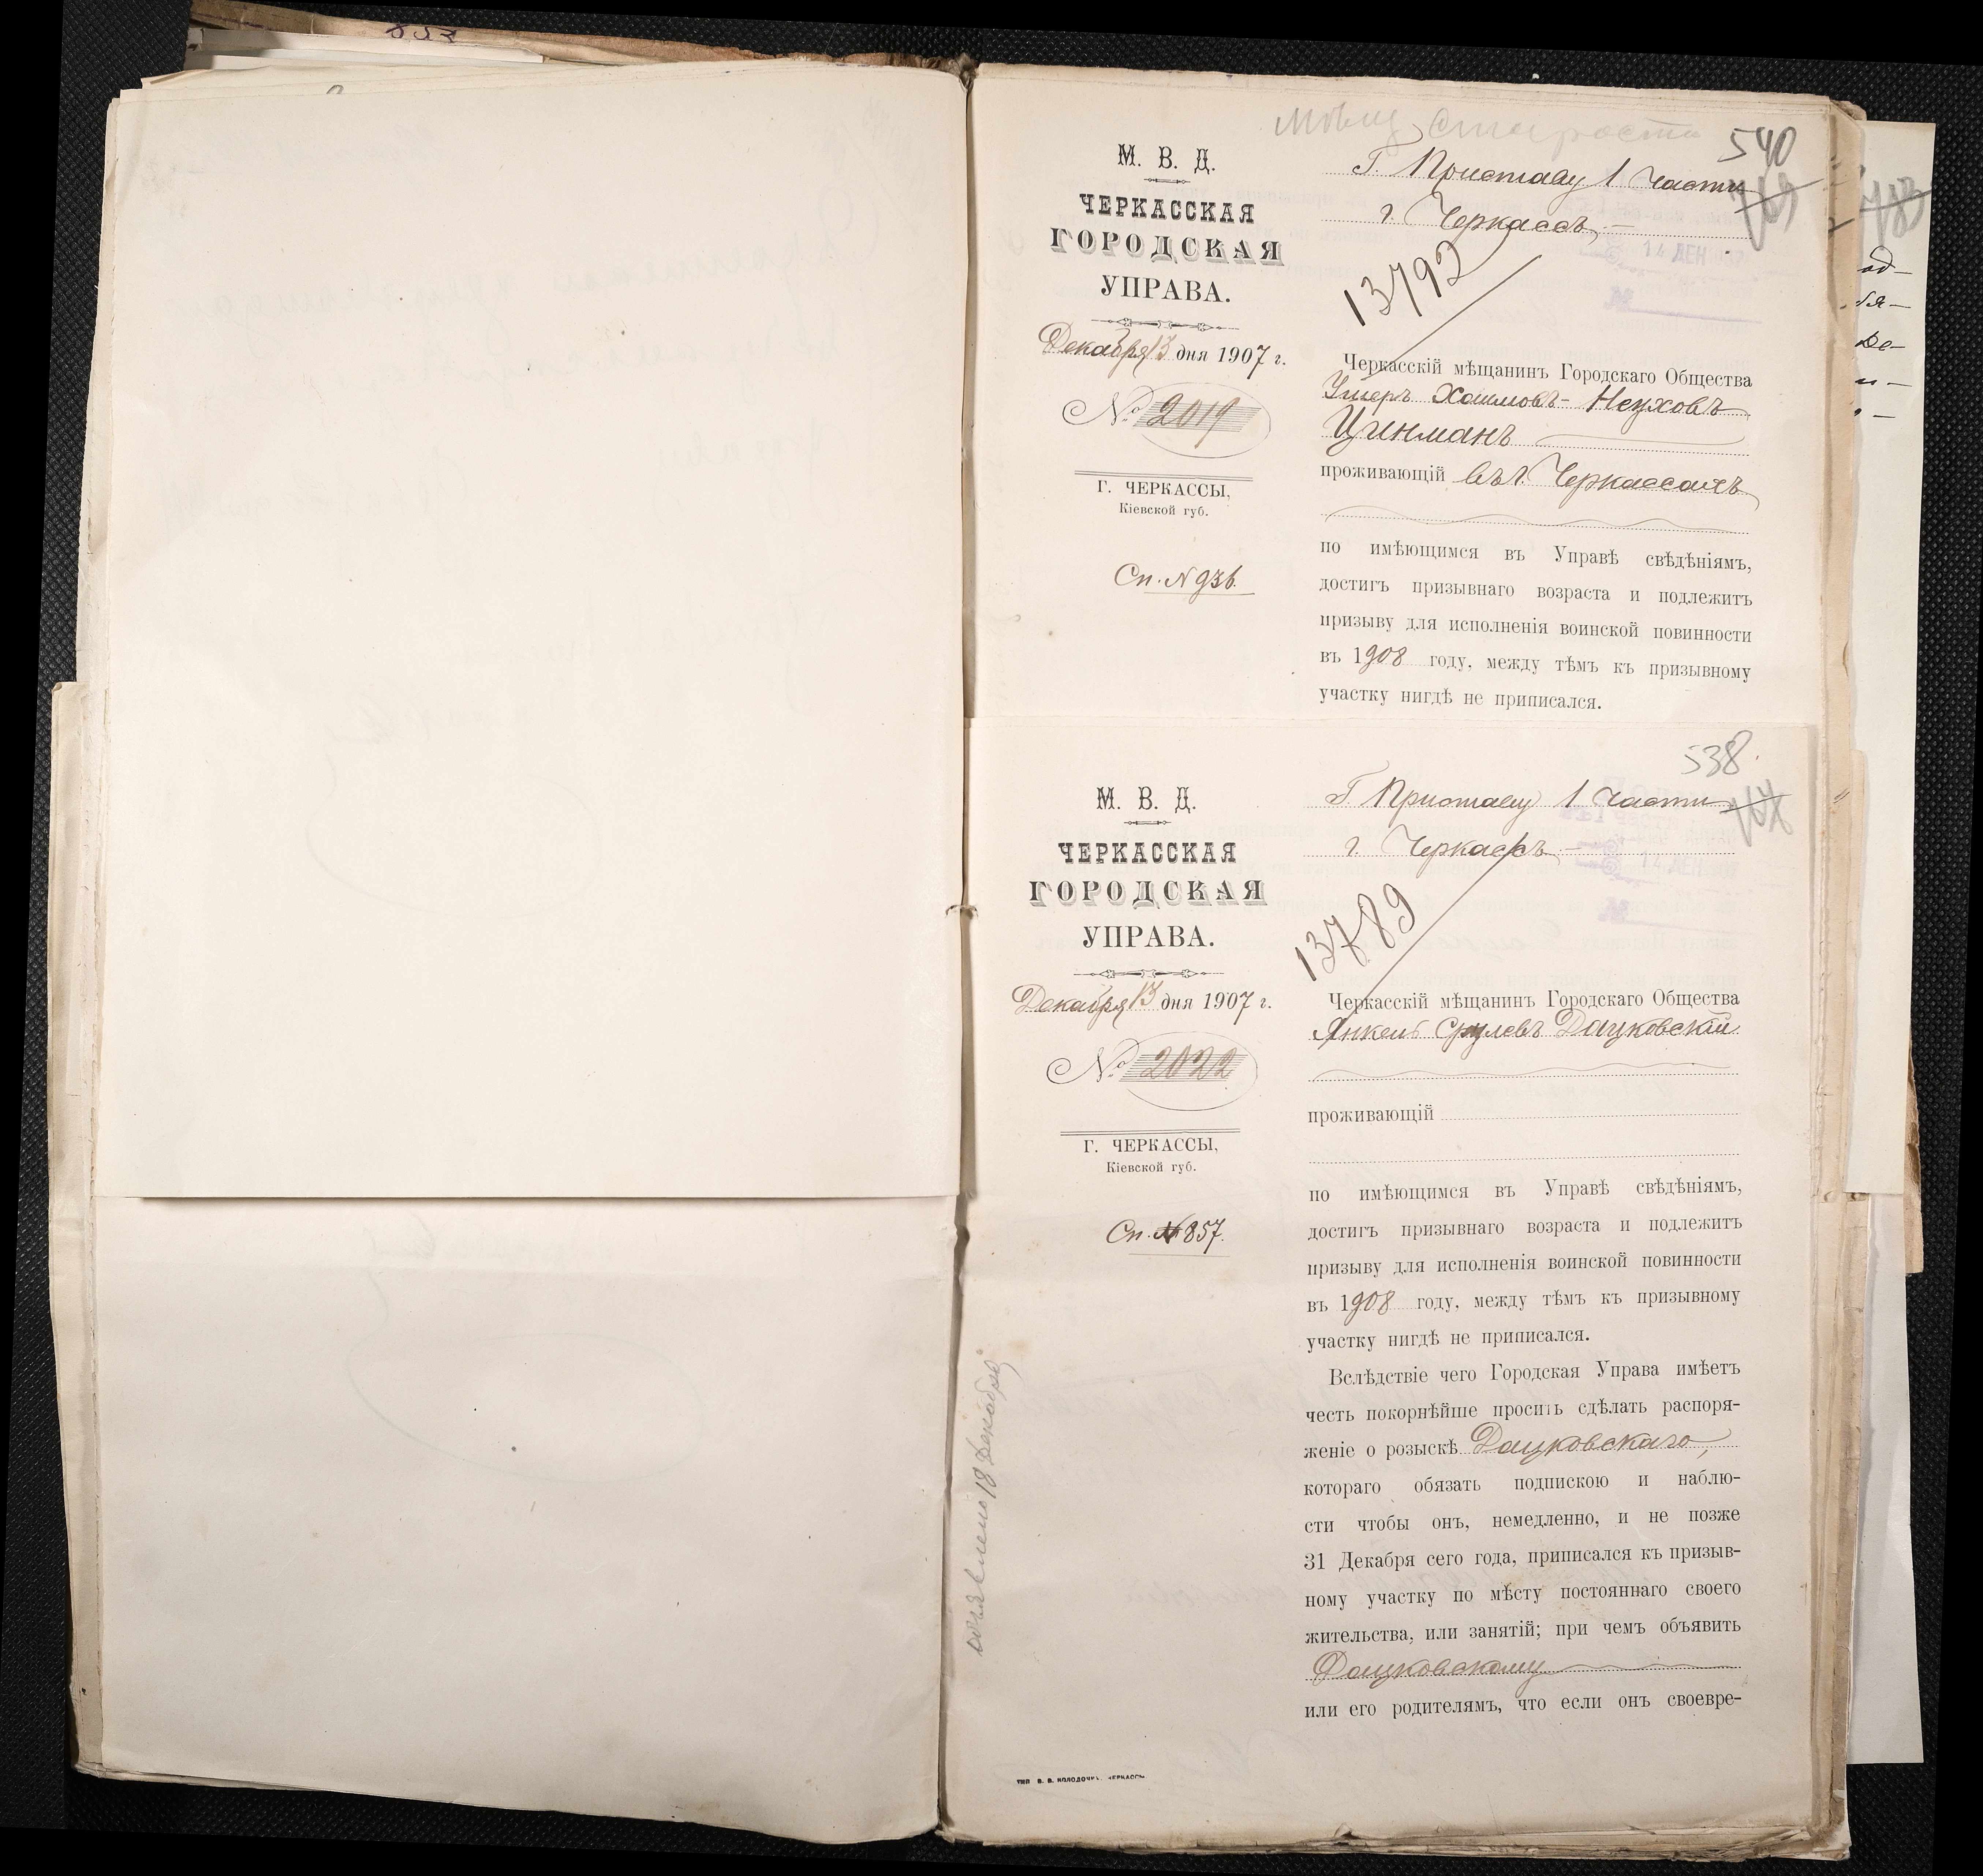 540
Г. Приставу 1 части
г. Черкассъ.
769
М. В. Д.
ЧЕРКАССКАЯ
ГОРОДСКАЯ
УПРАВА.
Декабря 13 дня 1907 г.
№ 2019
Г. ЧЕРКАССЫ,
Кіевской губ.
Сп. № 936.
14 ДЕК
№
13792
Черкасскій мѣщанинъ Городскаго Общества
Ушеръ Хаимовъ-Неуховъ
Цинманъ
проживающій въ г. Черкассахъ
по имѣющимся въ Управѣ свѣдѣніямъ,
достигъ призывнаго возраста и подлежитъ
призыву для исполненія воинской повинности
въ 1908 году, между тѣмъ къ призывному
участку нигдѣ не приписался.
538
Г. Приставу 1 части
г. Черкассъ.
767
М. В. Д.
ЧЕРКАССКАЯ
ГОРОДСКАЯ
УПРАВА.
Декабря 13 дня 1907 г.
№ 2022
Г. ЧЕРКАССЫ,
Кіевской губ.
Сп. № 857.
14 ДЕК
№
13789
Черкасскій мѣщанинъ Городскаго Общества
Янкель Срулевъ Дацковскій
проживающій
по имѣющимся въ Управѣ свѣдѣніямъ,
достигъ призывнаго возраста и подлежитъ
призыву для исполненія воинской повинности
въ 1908 году, между тѣмъ къ призывному
участку нигдѣ не приписался.
Вслѣдствіе чего Городская Управа имѣетъ
честь покорнѣйше просить сдѣлать распоря-
женіе о розыскѣ Дацковскаго,
котораго обязать подпискою и наблю-
сти чтобы онъ, немедленно, и не позже
31 Декабря сего года, приписался къ призыв-
ному участку по мѣсту постояннаго своего
жительства, или занятій; при чемъ объявить
Дацковскому
или его родителямъ, что если онъ своевре-
объявлено 18 декабря
ТИП. В. В. КОЛОДОЧК. ЧЕРКАССЫ
783